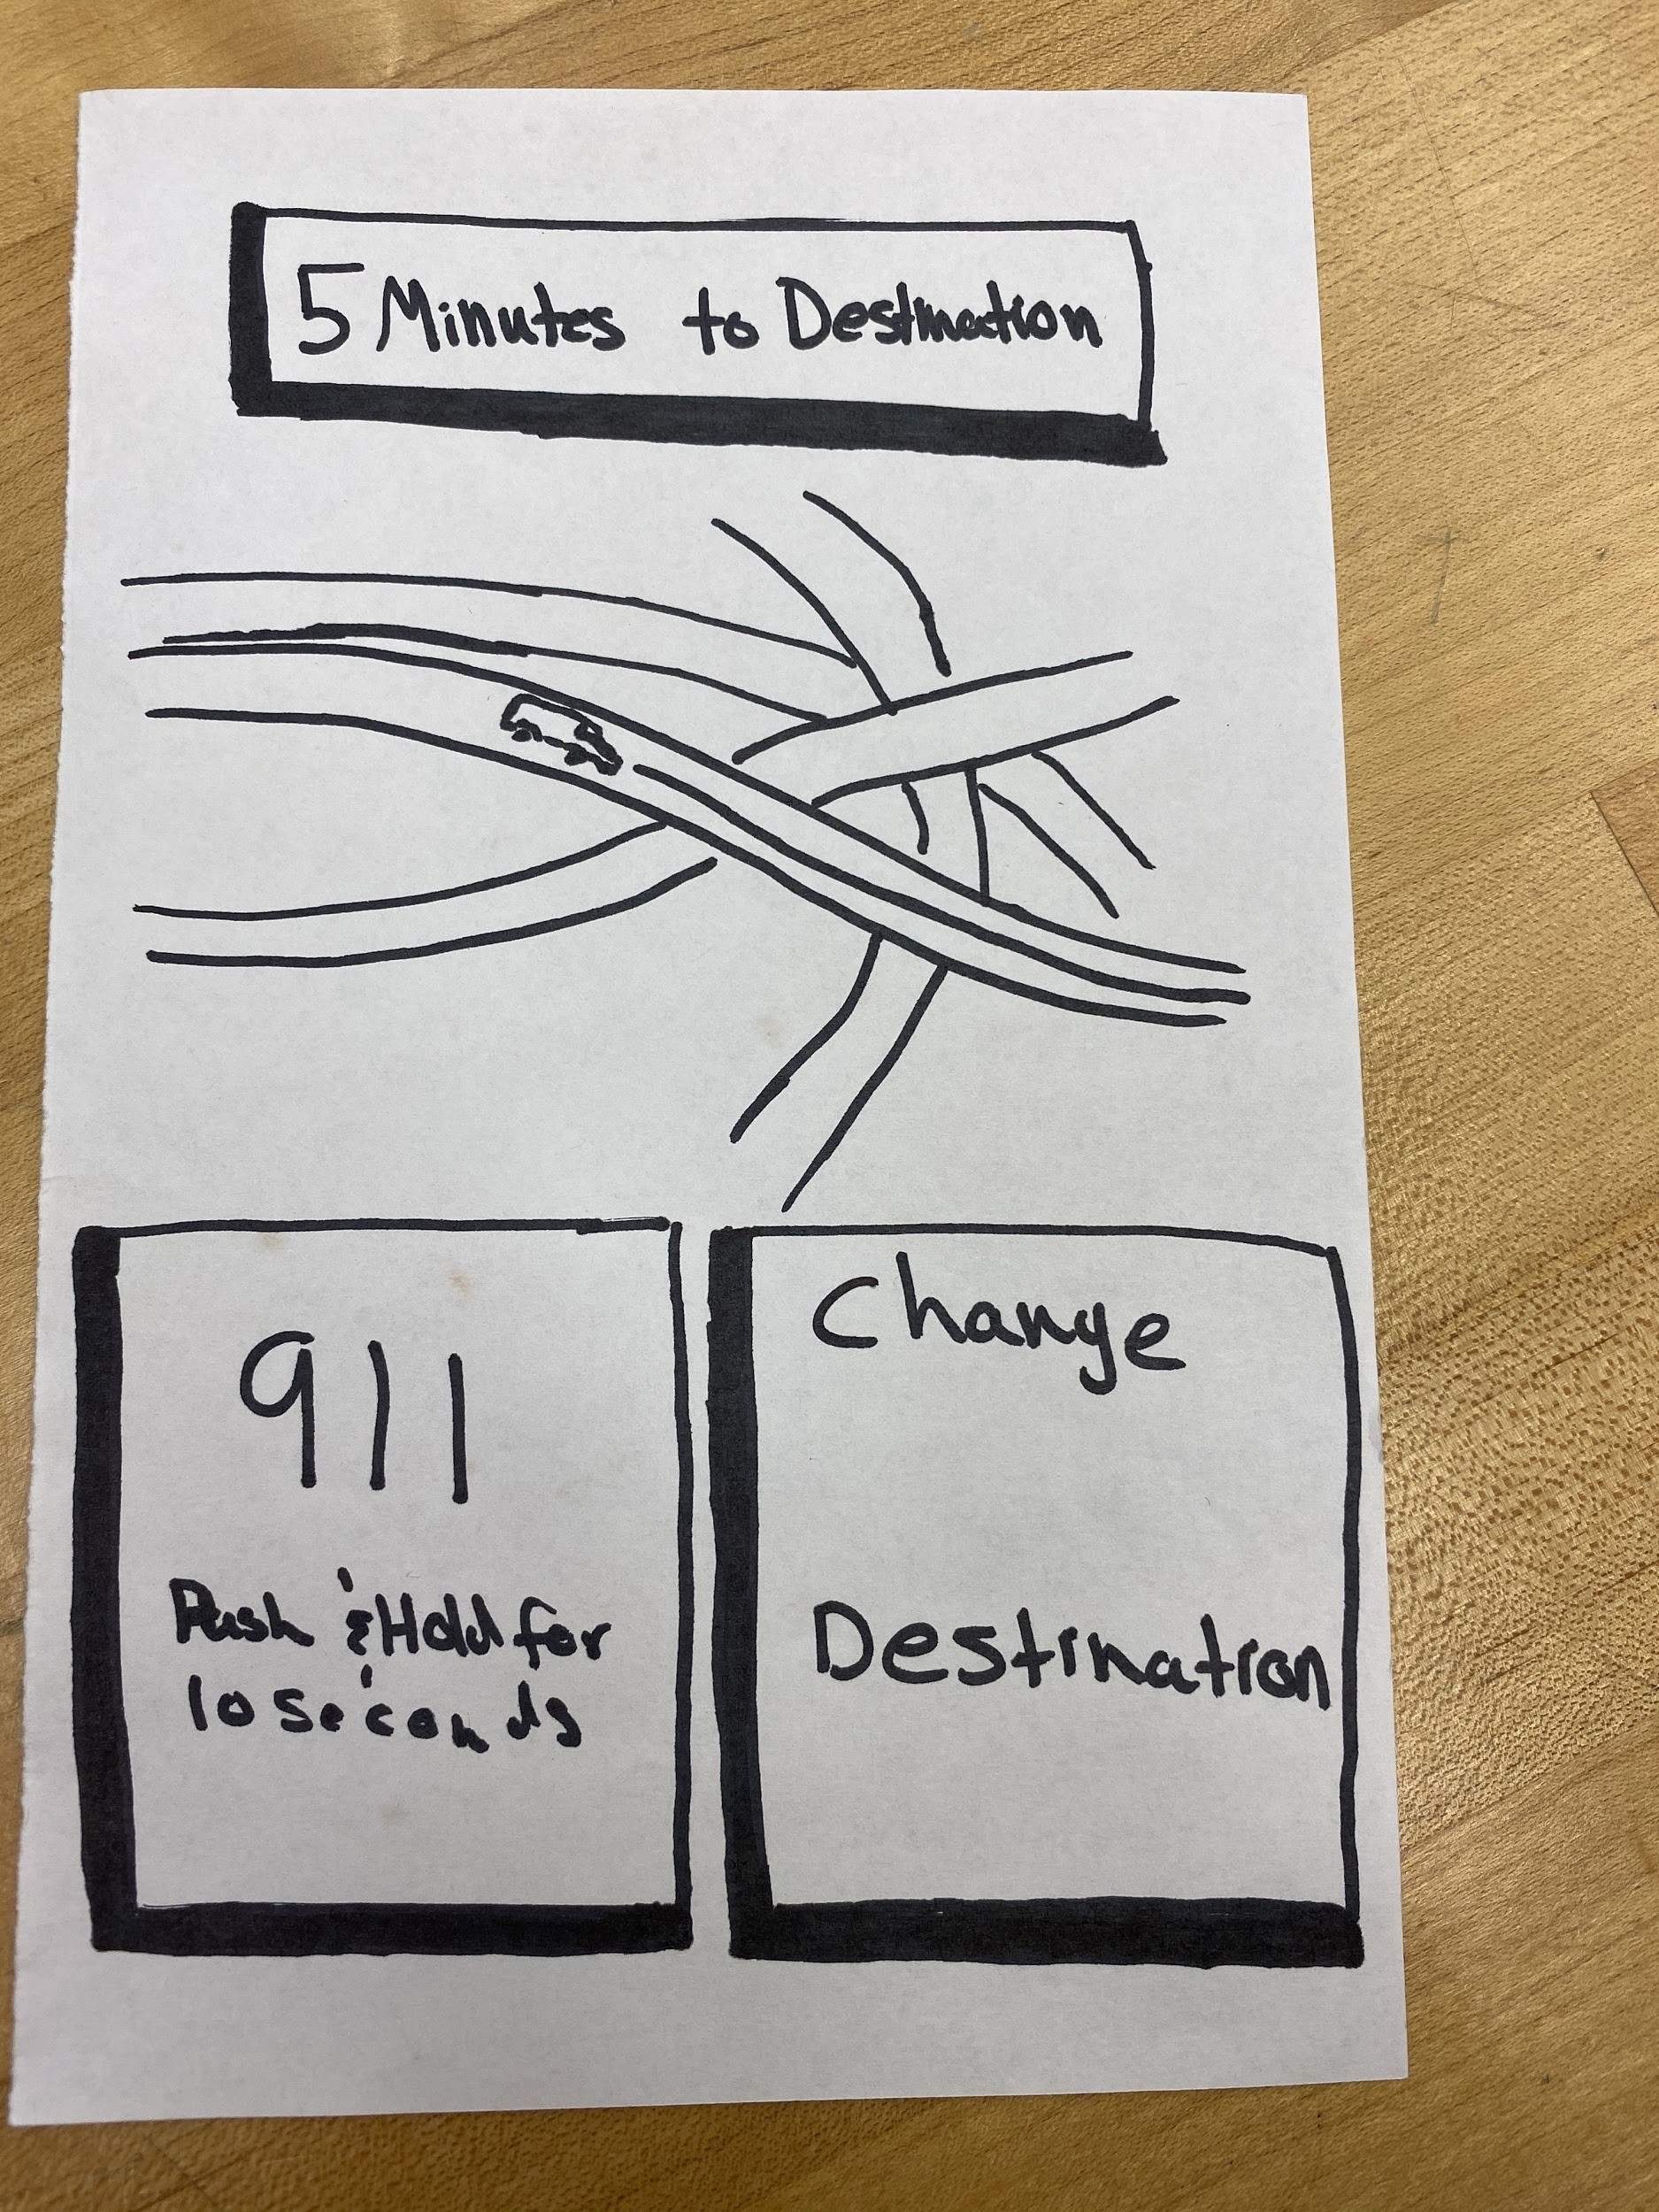 5 Minutes to Destination
911
Push & Hold for
10 seconds
Change
Destination